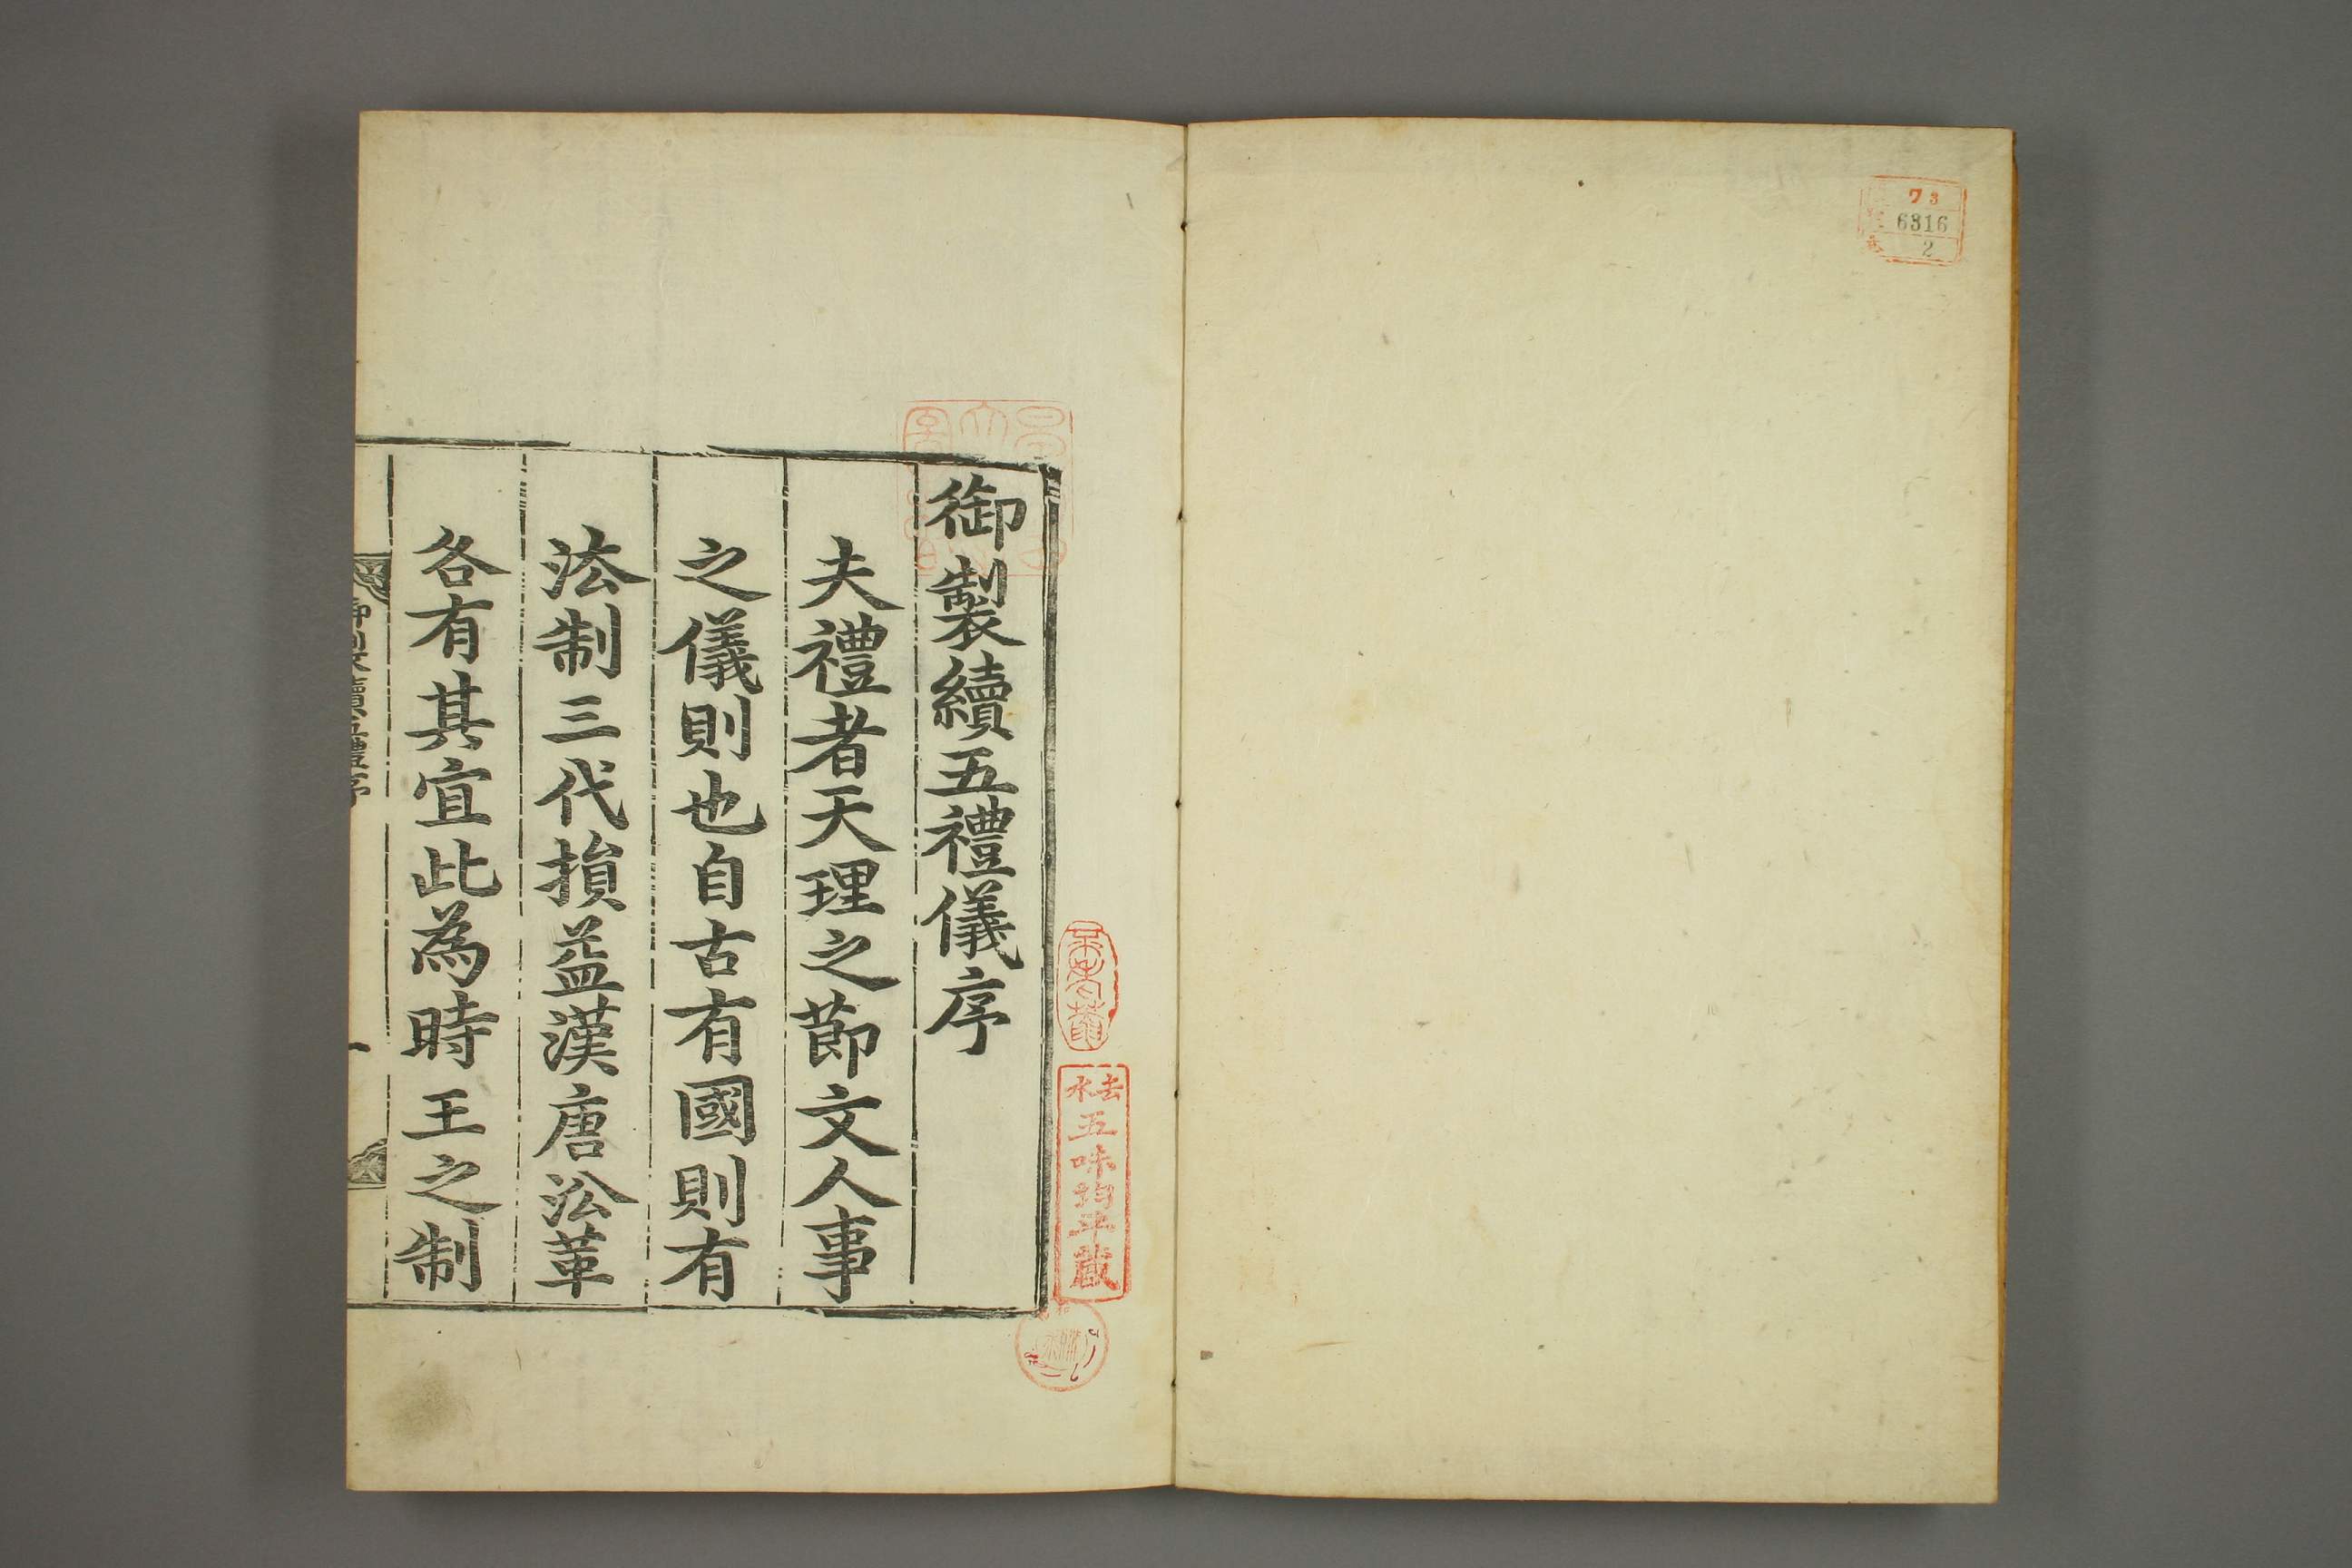 73
6316
2
御製續五禮儀序
夫禮者天理之節文人事
之儀則也自古有國則有
法制三代損益漢唐沿革
各有其宜此為時王之制
御製續五禮序
一
去水
五味均平藏